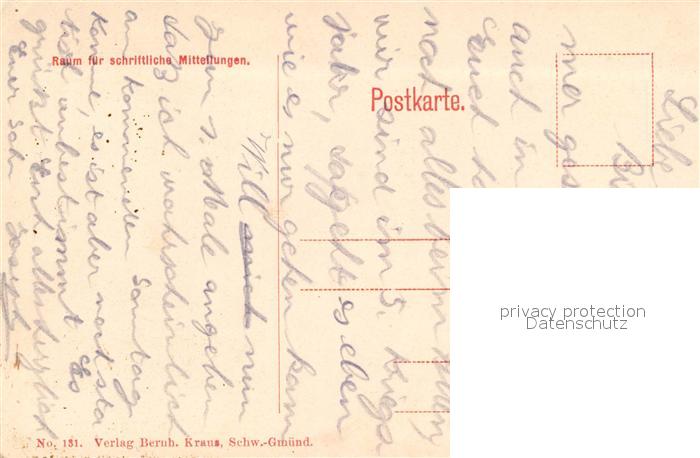 Raum für schriftliche Mitteilungen.
Postkarte.
Liebe
auch in
Euch
noch alles beim Alten
wir sind im 5. Kriegs
jahr, da geht es eben
wie es nur gehen kann
Will nun
zum 1. Male angehen
daß ich wahrscheinlich
am kommenden Sonntag
komme, es ist aber noch
unbestimmt Es
grüßt Euch alle herzlich
Euer Sohn Joseph
privacy protection
Datenschutz
No. 131. Verlag Bernh. Kraus, Schw.-Gmünd.